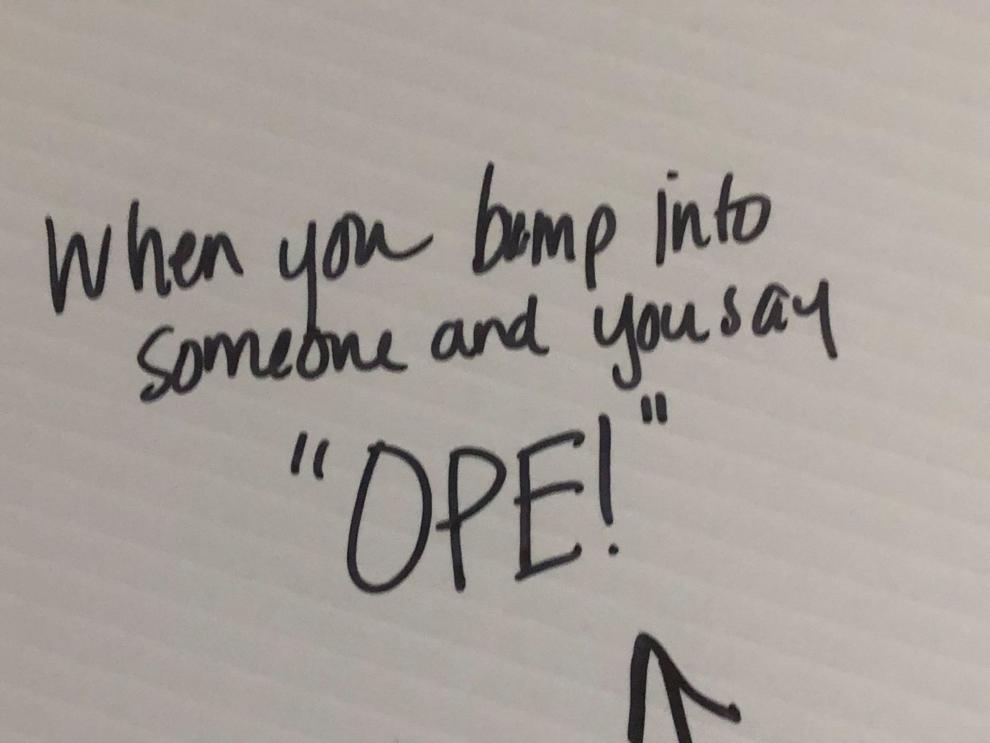 When you bump into
someone and you say
"OPE!"